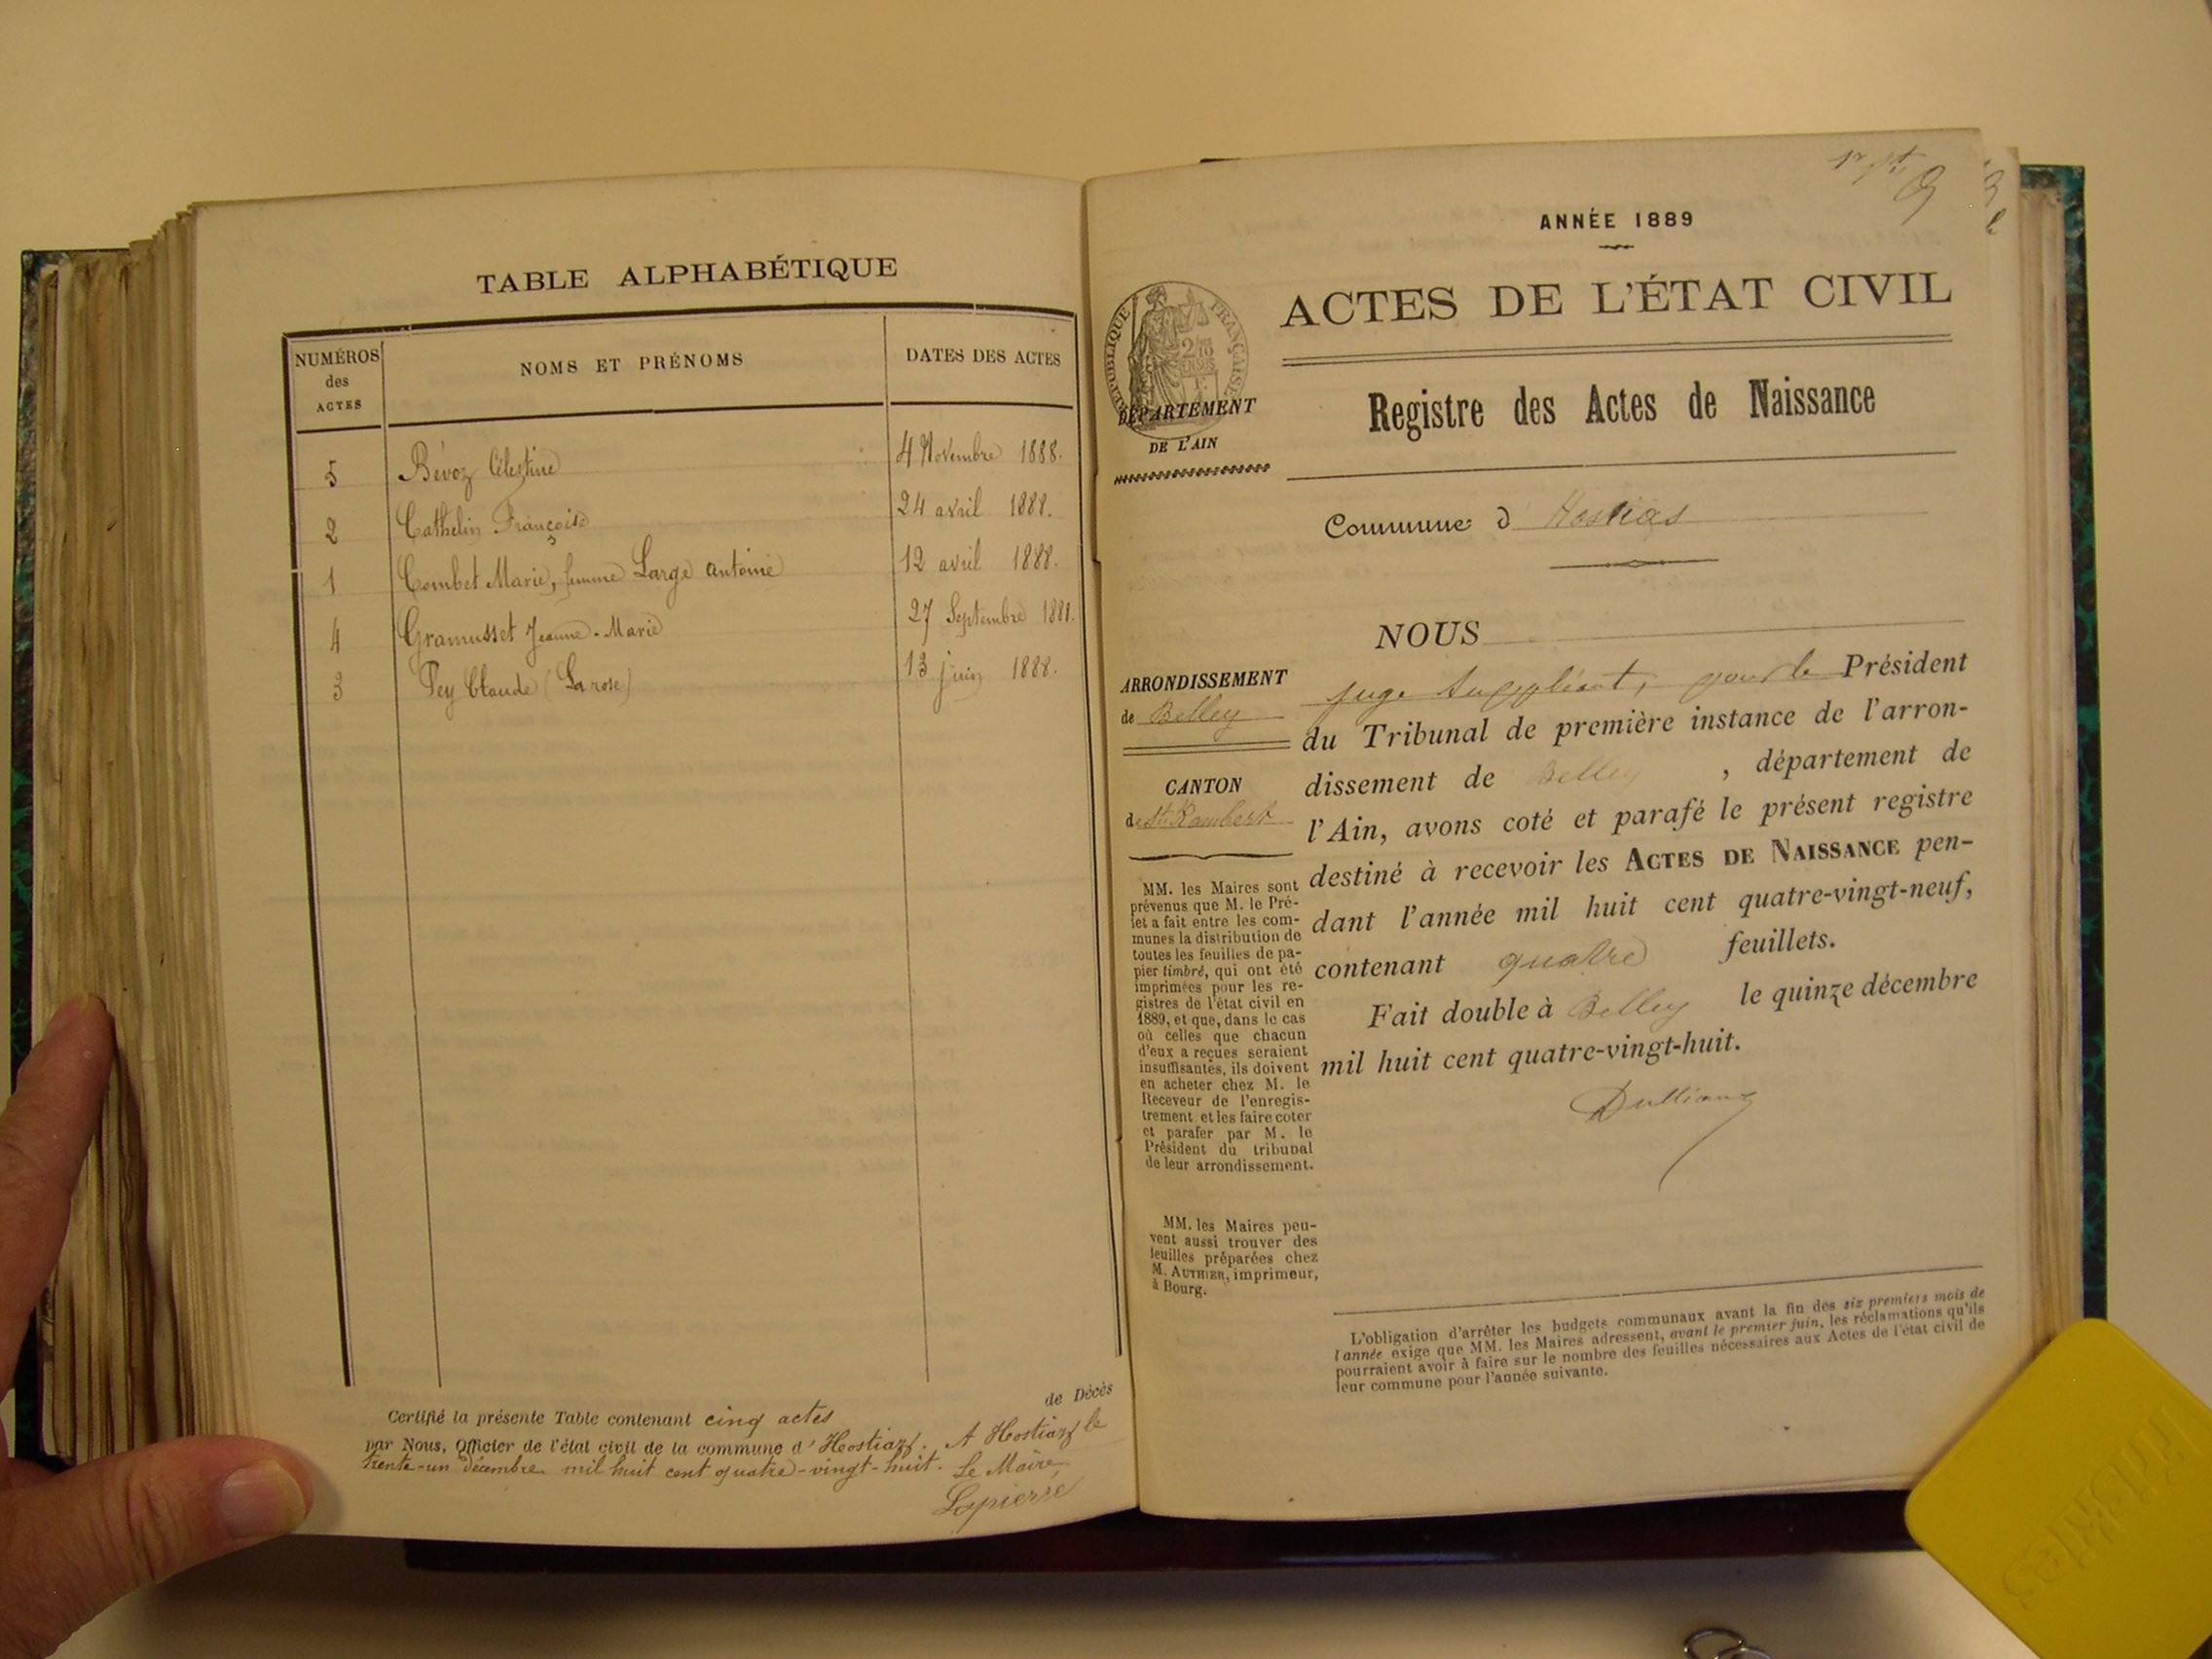 TABLE ALPHABÉTIQUE
NUMÉROS des ACTES
NOMS ET PRÉNOMS
DATES DES ACTES
5 Bévoz Célestine 4 Novembre 1888.
2 Cathelin Françoise 24 avril 1888.
1 Combet Marie, femme Large antoine 12 avril 1888.
4 Gramusset Jeanne-Marie 27 Septembre 1888.
3 Pey Claude (Larose) 13 juin 1888.
de Décès
Certifié la présente Table contenant cinq actes
par Nous, Officier de l'état civil de la commune d'Hostiaz. A Hostiaz le
trente-un décembre mil huit cent quatre-vingt-huit. Le Maire,
Lapierre
ANNÉE 1889
ACTES DE L'ÉTAT CIVIL
RÉPUBLIQUE FRANÇAISE
DÉPARTEMENT
DE L'AIN
Registre des Actes de Naissance
Commune d Hostias
ARRONDISSEMENT
de Belley
CANTON
de St Rambert
MM. les Maires sont
prévenus que M. le Pré-
fet a fait entre les com-
munes la distribution de
toutes les feuilles de pa-
pier timbré, qui ont été
imprimées pour les re-
gistres de l'état civil en
1889, et que, dans le cas
où celles que chacun
d'eux a reçues seraient
insuffisantes, ils doivent
en acheter chez M. le
Receveur de l'enregis-
trement et les faire coter
et parafer par M. le
Président du tribunal
de leur arrondissement.
MM. les Maires peu-
vent aussi trouver des
feuilles préparées chez
M. AUTHIER, imprimeur,
à Bourg.
NOUS
juge suppléant, pour le Président
du Tribunal de première instance de l'arron-
dissement de Belley, département de
l'Ain, avons coté et parafé le présent registre
destiné à recevoir les ACTES DE NAISSANCE pen-
dant l'année mil huit cent quatre-vingt-neuf,
contenant quatre feuillets.
Fait double à Belley le quinze décembre
mil huit cent quatre-vingt-huit.
L'obligation d'arrêter les budgets communaux avant la fin des six premiers mois de
l'année exige que MM. les Maires adressent, avant le premier juin, les réclamations qu'ils
pourraient avoir à faire sur le nombre des feuilles nécessaires aux Actes de l'état civil de
leur commune pour l'année suivante.
FRISKIES